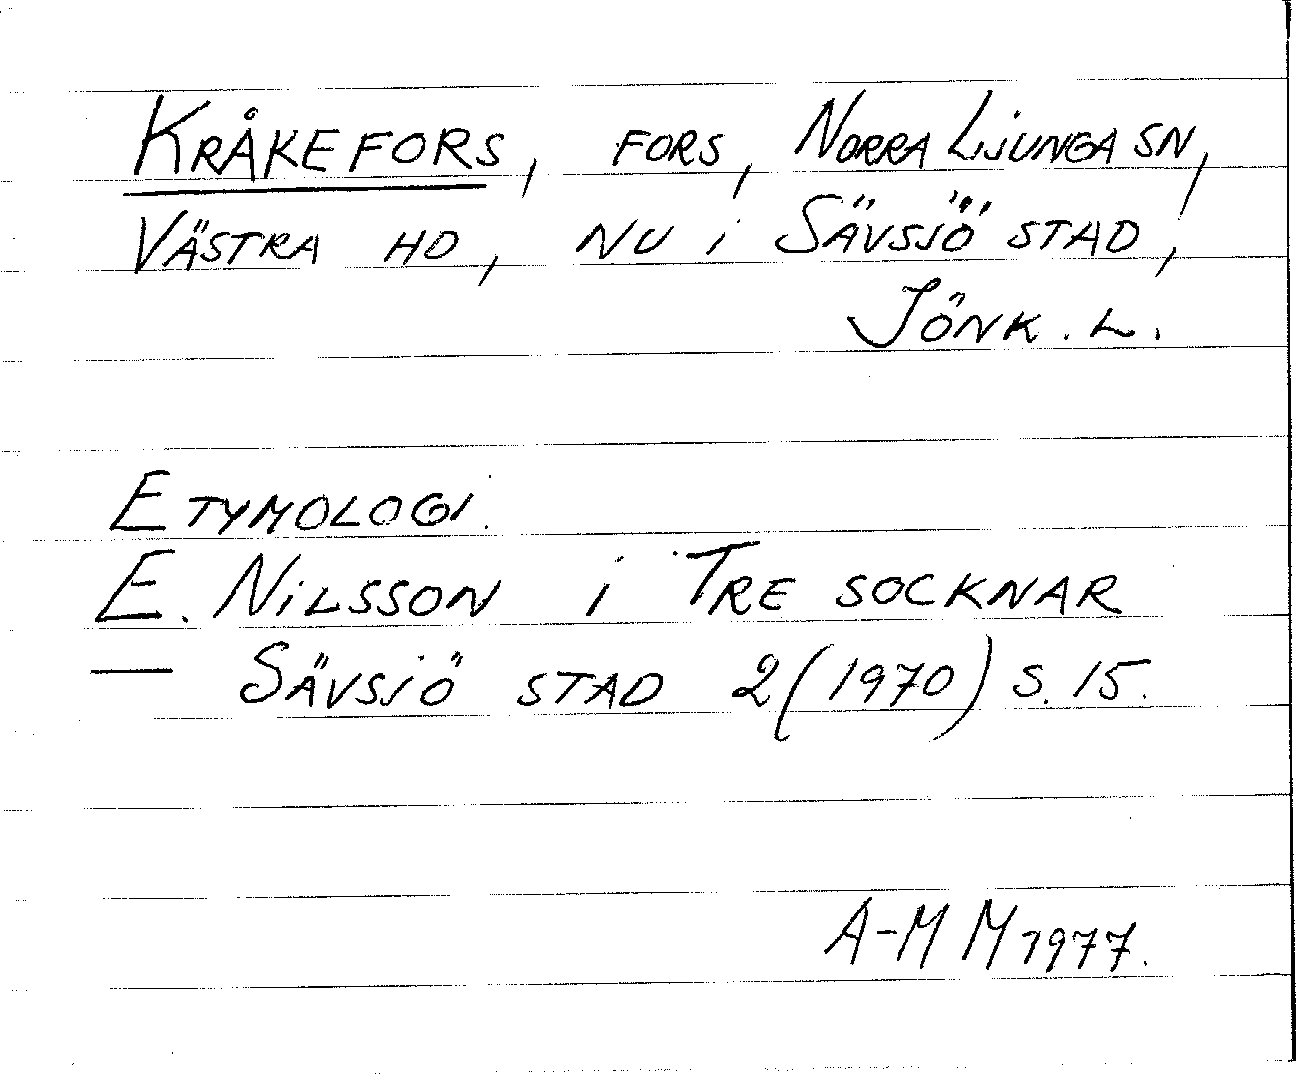 KRÅKEFORS, FORS, NORRA LJUNGA SN,
VÄSTRA HD, NU i SÄVSJÖ STAD,
JÖNK. L.
ETYMOLOGI.
E. NILSSON i TRE SOCKNAR
— SÄVSJÖ STAD 2 (1970) S. 15.
A-M M 1977.